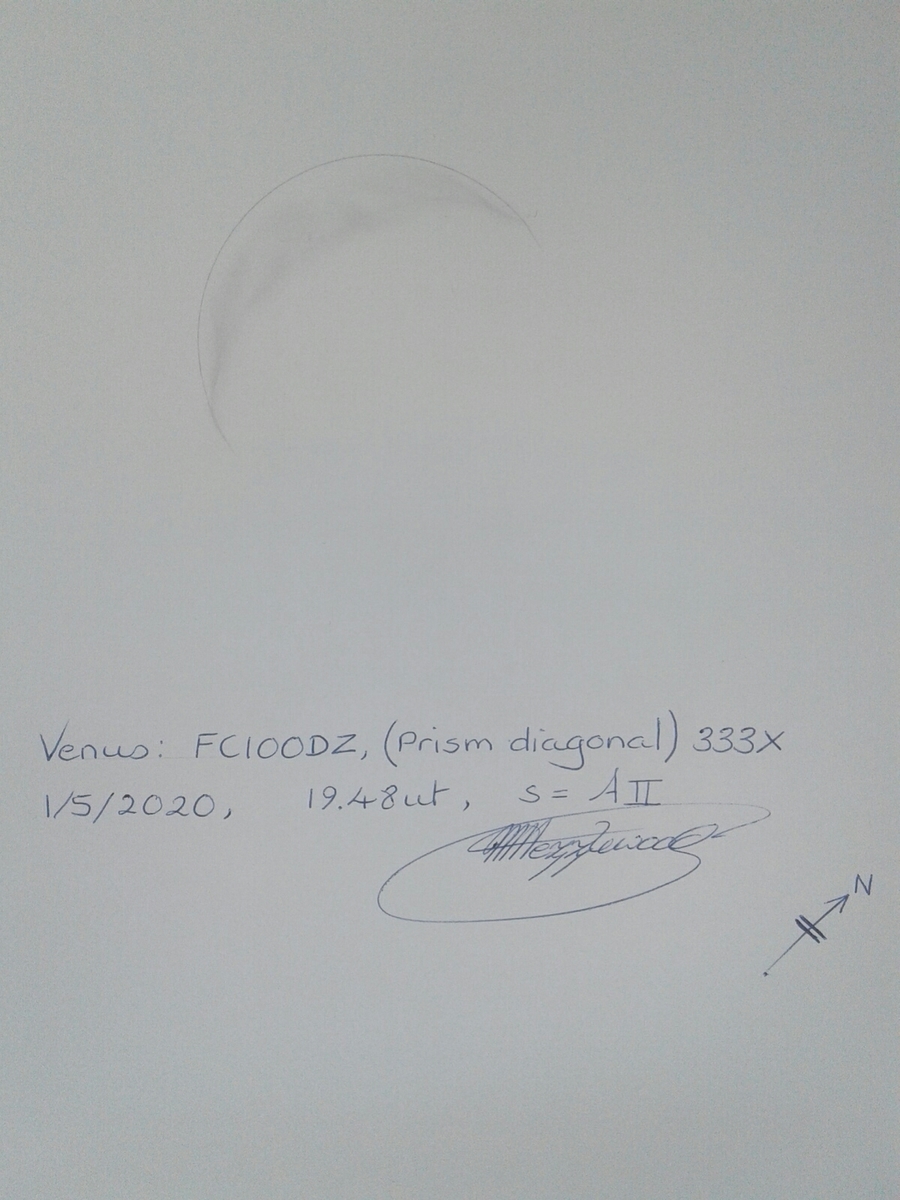 Venus: FC100DZ, (Prism diagonal) 333X
1/5/2020, 19.48ut, S = AII
N